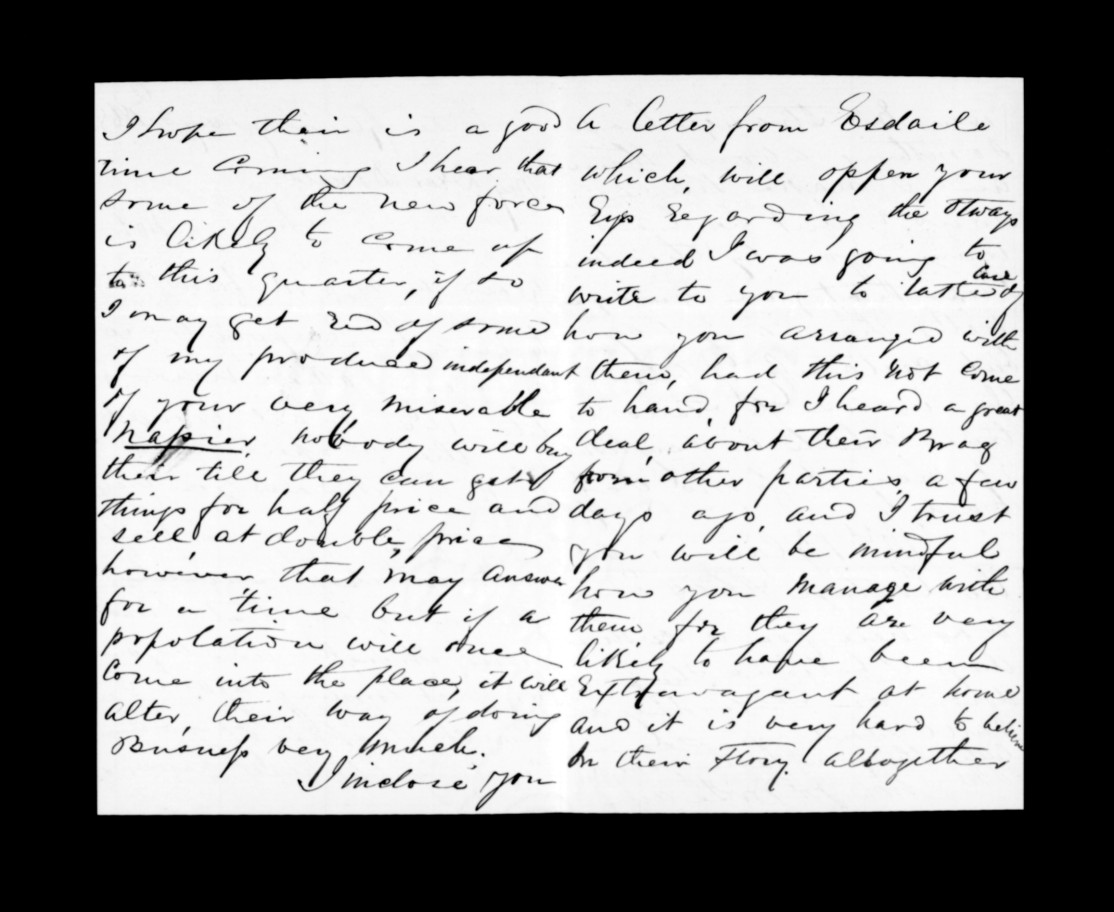 I hope their is a good
time coming I hear that
some of the new force
is likely to come up
to this quarter, if so
I may get red of some
of my produce independant
of your very miserable
Napier, nobody will buy
their till they can get
things for half price and
sell, at double, price
however that may answer
for a time but if a
popolation will once
come into the place, it will
alter, their way of doing
Busness very much.
I inclose you
A letter from Esdaile
which, will oppen your
Eys regarding the Otways
indeed I was going to
write to you to take care of
how you arranged with
them, had this not come
to hand, for I heard a great
deal, about their Brag
from other parties, a few
days ago, and I trust
you will be mindful
how you manage with
them for they are very
likely to have been
Extravagant at home
and it is very hard to believe
in their Story. altogether